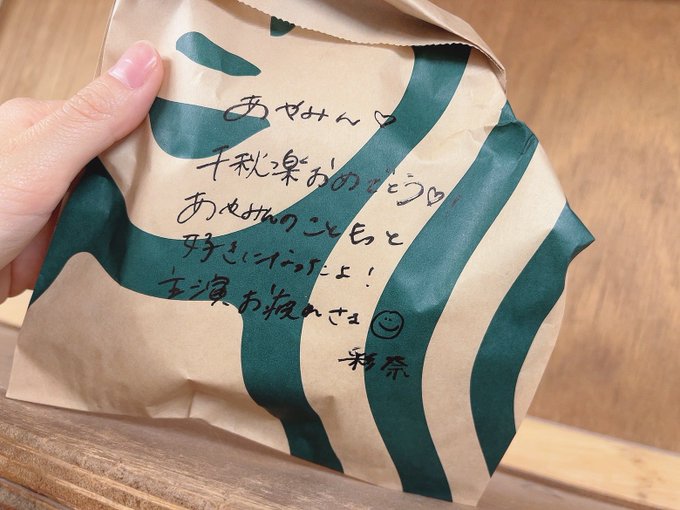 あやみん♡
千秋楽おめでとう♡!
あやみんのこともっと
好きになったよ!
主演お疲れさま
彩奈